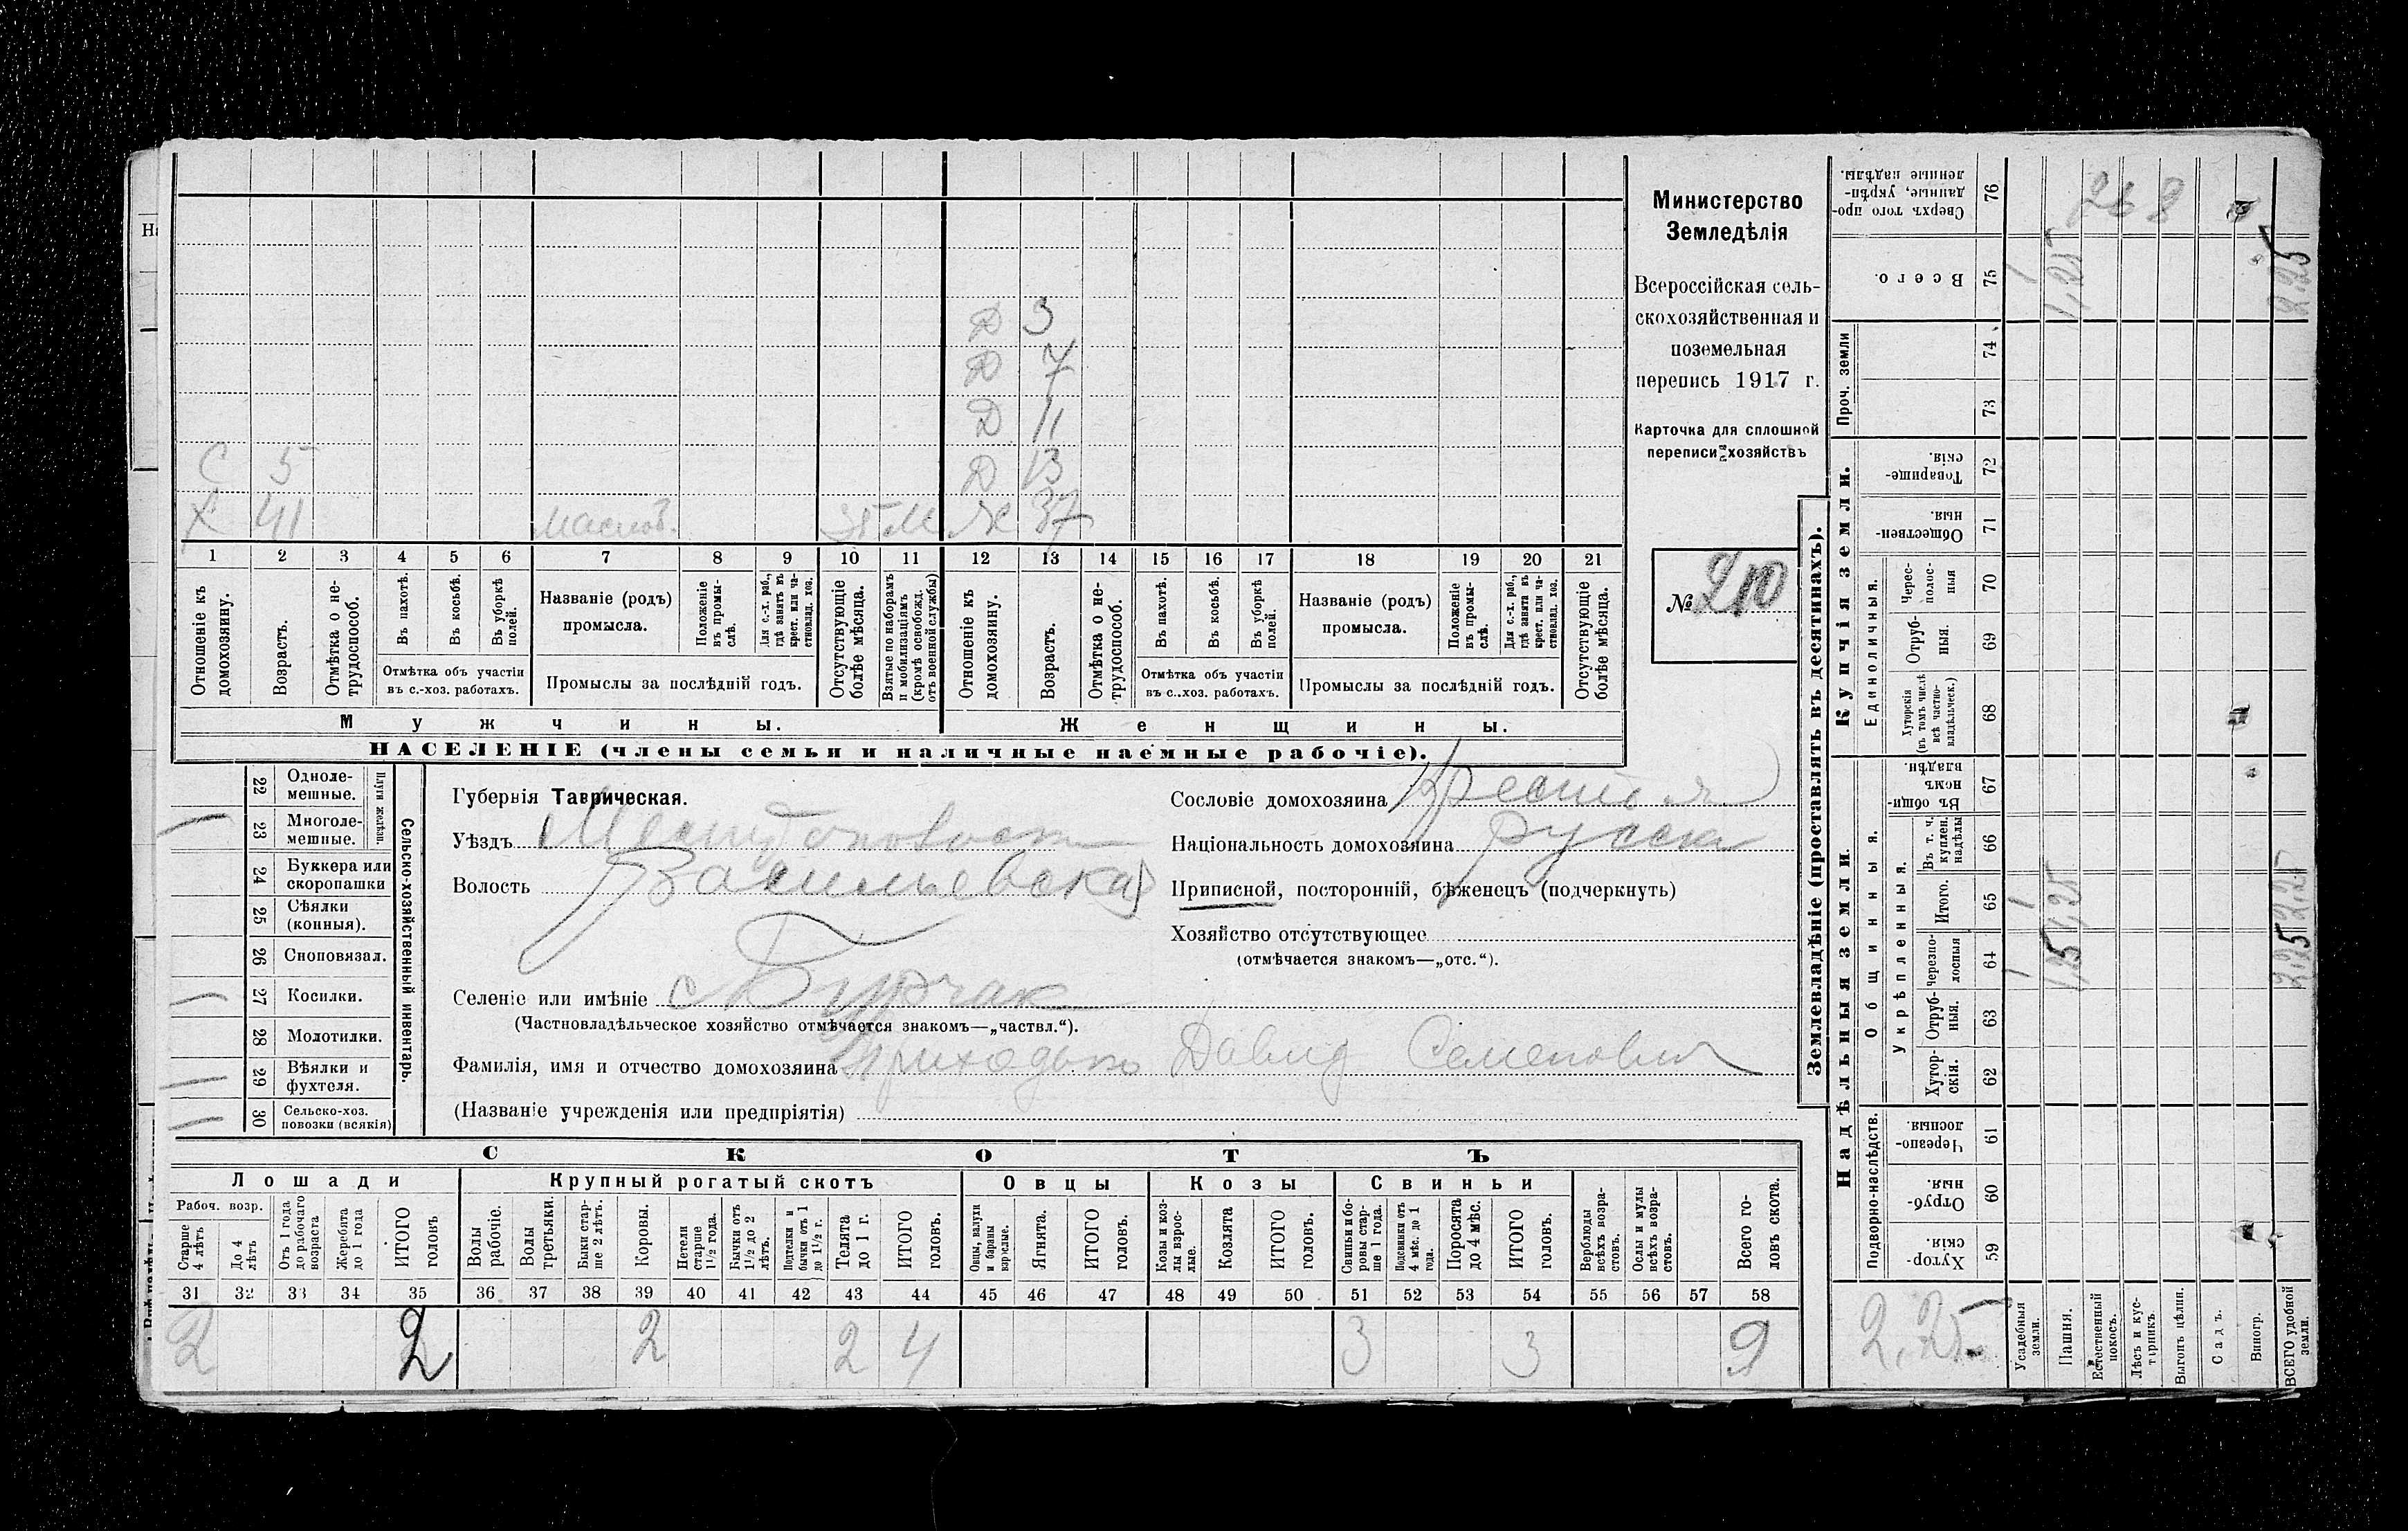 Министерство
Земледѣлія
Всероссійская сель-
скохозяйственная и
поземельная
перепись 1917 г.
Карточка для сплошной
переписи хозяйствъ
№ 210
Д 3
Д 7
Д 11
С 5 Д 13
Х 41 М Ж 37
1 2 3 4 5 6 7 8 9 10 11 12 13 14 15 16 17 18 19 20 21
Отношеніе къ домохозяину.
Возрастъ.
Отмѣтка о не-трудоспособ.
Въ пахотѣ.
Въ косьбѣ.
Въ уборкѣ полей.
Отмѣтка объ участіи
въ с.-хоз. работахъ.
Названіе (родъ)
промысла.
Положеніе въ промы-слѣ.
Для с.-х. раб., гдѣ занятъ въ крест. или ча-стновлад. хоз.
Промыслы за послѣдній годъ.
Отсутствующіе болѣе мѣсяца.
Взятые по наборамъ и мобилизаціямъ (кромѣ освобожд. отъ военной службы)
Отношеніе къ домохозяину.
Возрастъ.
Отмѣтка о не-трудоспособ.
Въ пахотѣ.
Въ косьбѣ.
Въ уборкѣ полей.
Отмѣтка объ участіи
въ с.-хоз. работахъ.
Названіе (родъ)
промысла.
Положеніе въ промы-слѣ.
Для с.-х. раб., гдѣ занята въ крест. или ча-стновлад. хоз.
Промыслы за послѣдній годъ.
Отсутствующіе болѣе мѣсяца.
Мужчины. Женщины.
НАСЕЛЕНІЕ (члены семьи и наличные наемные рабочіе).
Сельско-хозяйственный инвентарь.
Плуги желѣзн.
22 Одноле-мешные.
23 Многоле-мешные.
24 Буккера или скоропашки
25 Сѣялки (конныя).
26 Сноповязал.
27 Косилки.
28 Молотилки.
29 Вѣялки и фухтеля.
30 Сельско-хоз. повозки (всякія)
Губернія Таврическая.
Уѣздъ
Волость Васильевская
Селеніе или имѣніе с Бурчак
(Частновладѣльческое хозяйство отмѣчается знакомъ—„частвл.“).
Фамилія, имя и отчество домохозяина Приходько Давид Семенович
(Названіе учрежденія или предпріятія)
Сословіе домохозяина
Національность домохозяина русск
Приписной, посторонній, бѣженецъ (подчеркнуть)
Хозяйство отсутствующее
(отмѣчается знакомъ—„отс.“).
СКОТЪ
Лошади Крупный рогатый скотъ Овцы Козы Свиньи
Рабоч. возр.
Старше 4 лѣтъ
До 4 лѣтъ
Отъ 1 года до рабочаго возраста
Жеребята до 1 года
ИТОГО головъ
Волы рабочіе.
Волы третьяки.
Быки стар-ше 2 лѣтъ.
Коровы.
Нетели старше 1½ года.
Бычки отъ 1½ до 2 лѣтъ.
Подтелки и бычки отъ 1 до 1½ г.
Телята до 1 г.
ИТОГО головъ.
Овцы, валухи и бараны взрослые.
Ягнята.
ИТОГО головъ.
Козы и коз-лы взрос-лые.
Козлята
ИТОГО головъ.
Свиньи и бо-ровы стар-ше 1 года.
Подсвинки отъ 4 мѣс. до 1 года.
Поросята до 4 мѣс.
ИТОГО головъ.
Верблюды всѣхъ возра-стовъ.
Ослы и мулы всѣхъ возра-стовъ.
Всего го-ловъ скота.
31 32 33 34 35 36 37 38 39 40 41 42 43 44 45 46 47 48 49 50 51 52 53 54 55 56 57 58
2 2 2 2 4 3 3 9
Землевладѣніе (проставлять въ десятинахъ).
Надѣльныя земли.
Купчія земли.
Подворно-наслѣдств.
Общинныя.
Укрѣпленныя.
Единоличныя.
Проч. земли
59 Хутор-скія.
60 Отруб-ныя.
61 Черезпо-лосныя
62 Хутор-скія.
63 Отруб-ныя.
64 Черезпо-лосныя
65 Итого.
66 Въ т. ч. куплен. надѣлы
67 Въ общи-номъ владѣн.
68 Хуторскія (въ томъ числѣ всѣ частно-владѣльческ.)
69 Отруб-ныя.
70 Черес-полос-ныя
71 Обществен-ныя.
72 Товарище-скія.
73
74
75 Всего.
76 Сверхъ того про-данные, укрѣп-ленные надѣлы.
Усадебныя земли. 1 1 1
Пашня. 1,25 1,25 1,25
Естественный покосъ.
Лѣсъ и кус-тарникъ.
Выгонъ цѣлин.
Садъ.
Виногр.
ВСЕГО удобной земли. 2,25 2,25 2,25
2,25